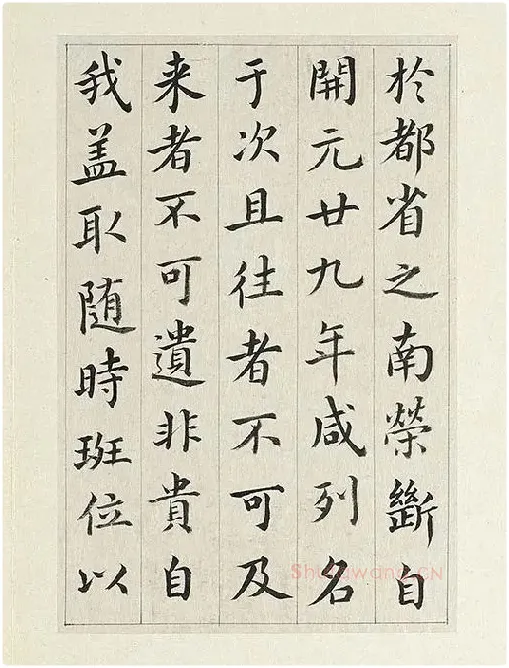 於都省之南榮斷自
開元廿九年咸列名
于次且往者不可及
来者不可遺非貴自
我盖取随時班位以